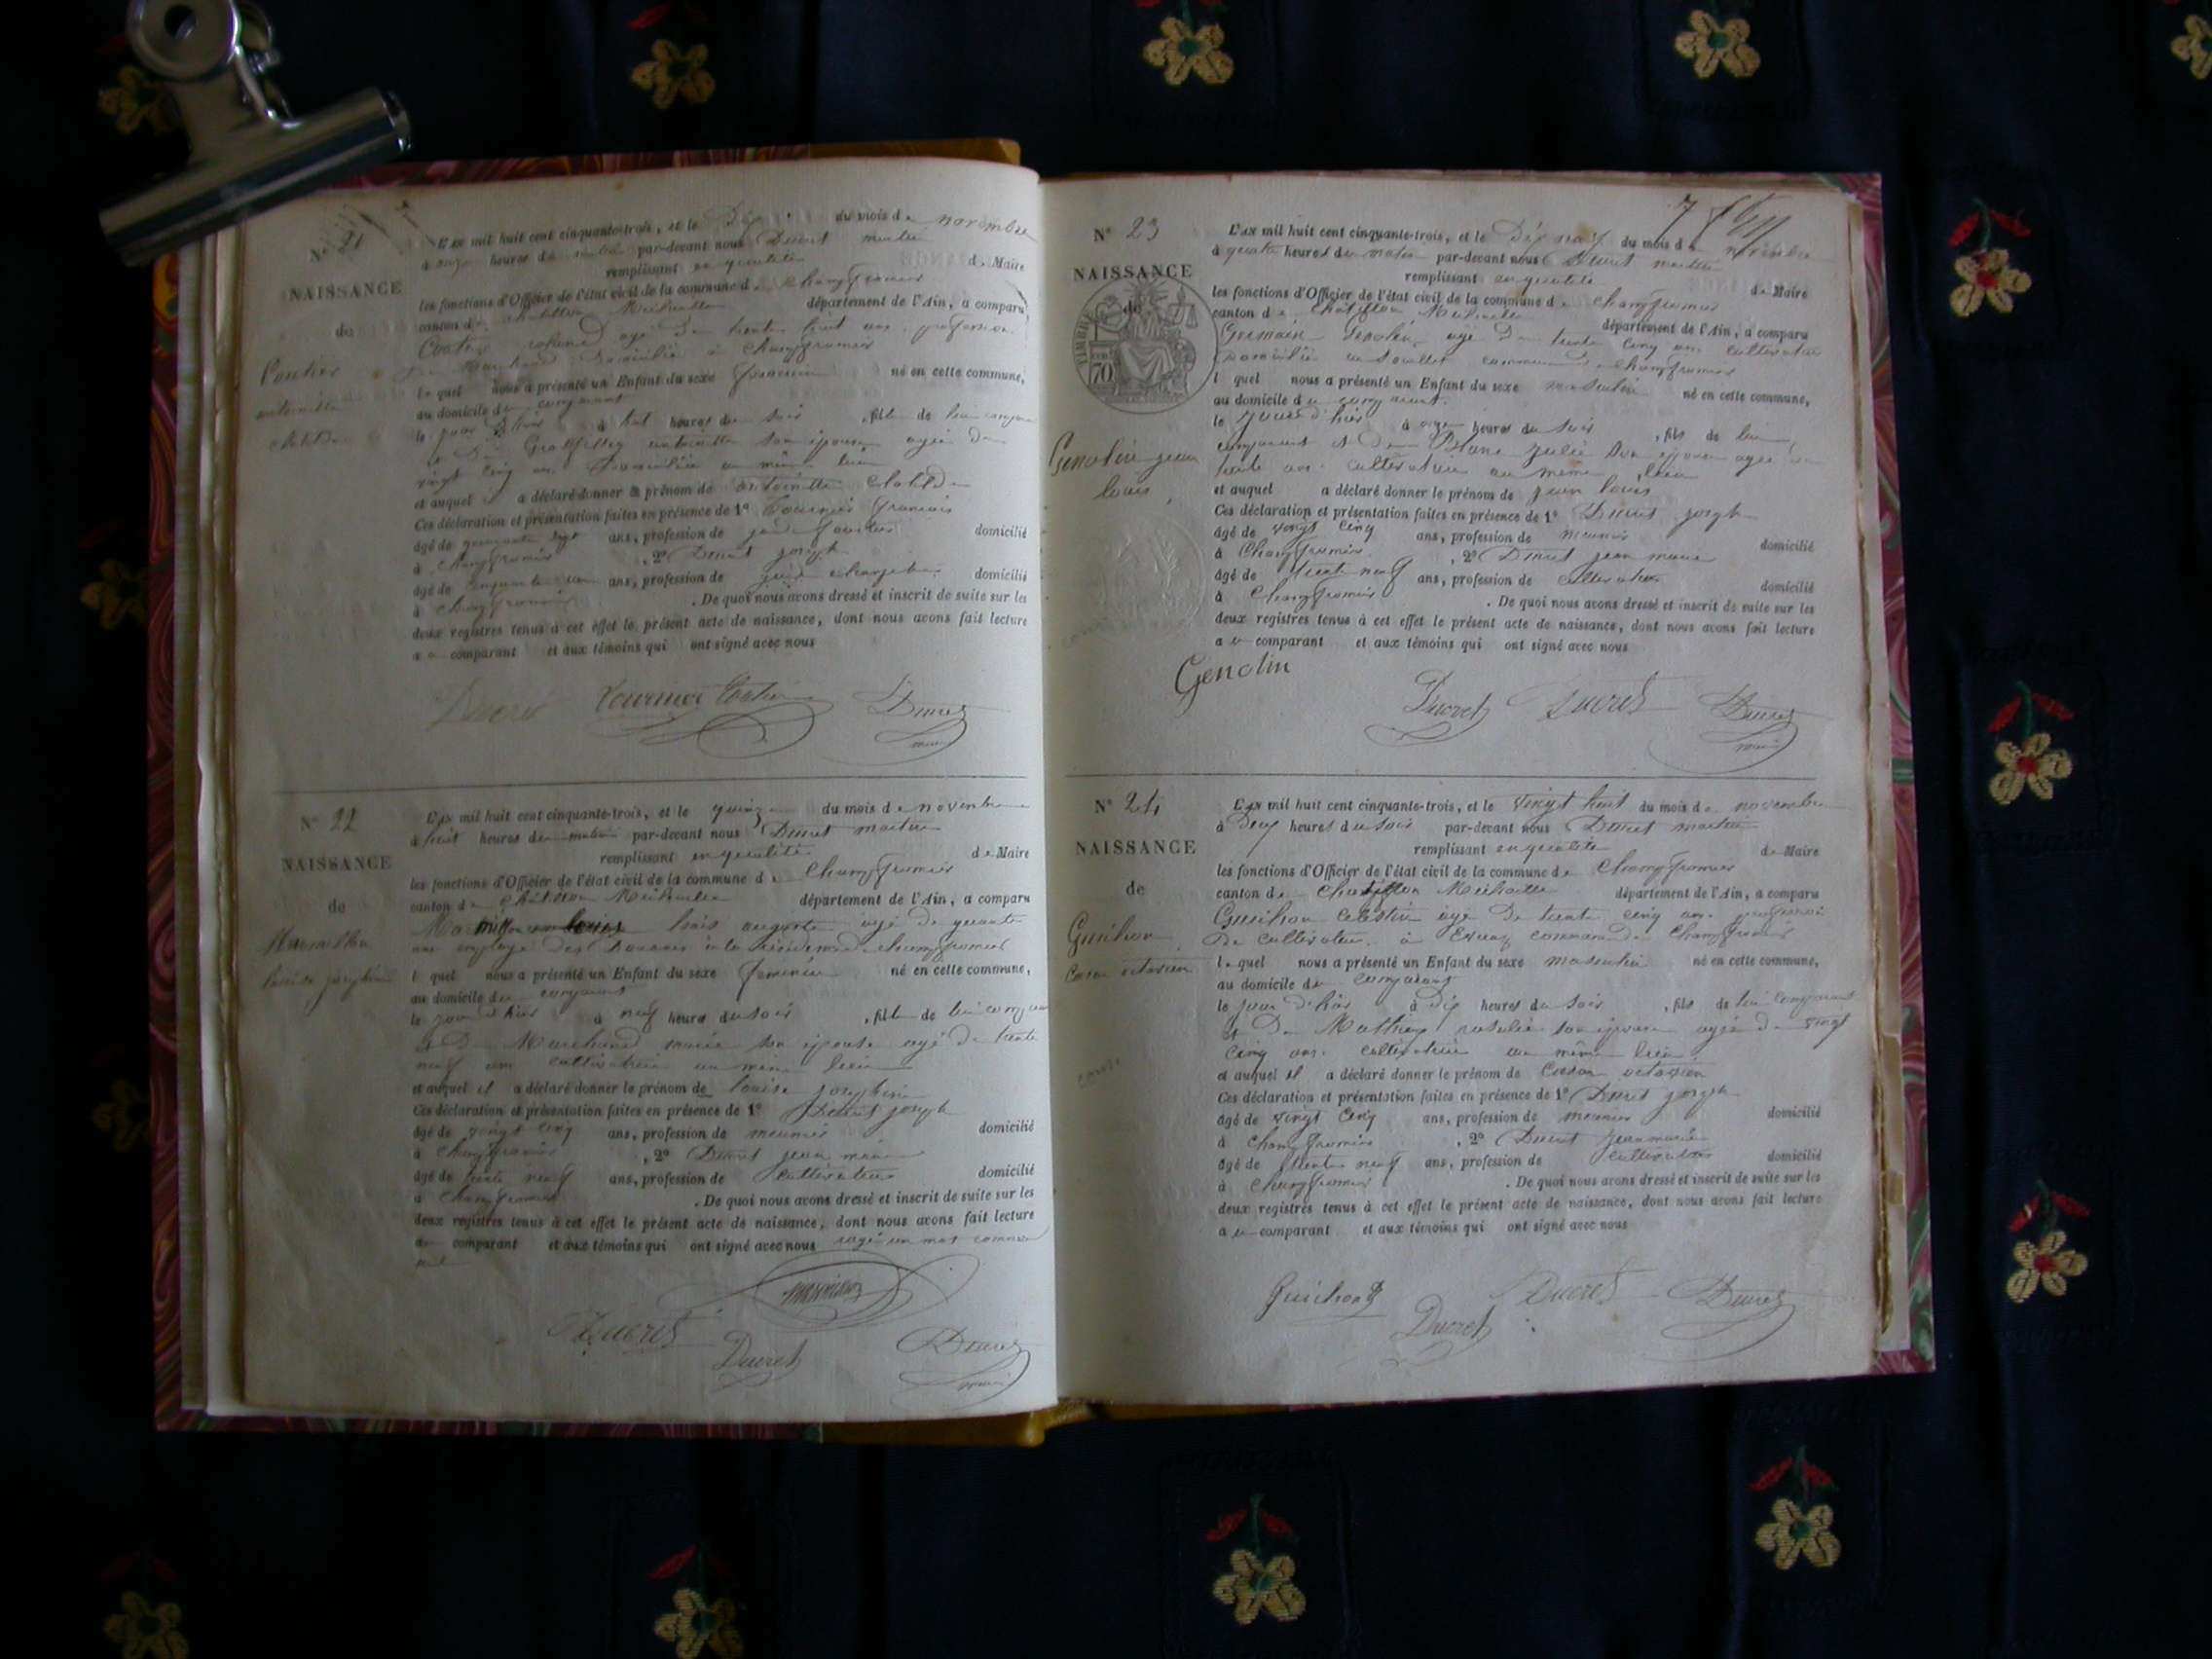 N° 21
NAISSANCE
de
Coutier
antoinette
clotilde
L'AN mil huit cent cinquante-trois, et le Dix du mois de novembre
à onze heures du matin par-devant nous Ducret martin
remplissant en qualité de Maire
les fonctions d'Officier de l'état civil de la commune de Champfromier
canton de Châtillon Michaille département de l'Ain, a comparu
âgé de trente huit ans, profession
de Marchand domicilié à Champfromier
lequel nous a présenté un Enfant du sexe féminin né en cette commune,
au domicile du comparant
le jour d'hier à huit heures du soir, fille de lui comparant
et de antoinette son épouse agée de
vingt cinq ans domiciliée au même lieu
et auquel il a déclaré donner le prénom de antoinette clotilde
Ces déclaration et présentation faites en présence de 1° Tournier françois
âgé de quarante sept ans, profession de domicilié
à Champfromier, 2° Ducret joseph
âgé de cinquante ans, profession de domicilié
à Champfromier. De quoi nous avons dressé et inscrit de suite sur les
deux registres tenus à cet effet le présent acte de naissance, dont nous avons fait lecture
au comparant et aux témoins qui ont signé avec nous
Ducret Tournier Coutier Ducret
maire
N° 22
NAISSANCE
de
Marmillon
louise josephine
L'AN mil huit cent cinquante-trois, et le quinze du mois de novembre
à huit heures du matin par-devant nous Ducret martin
remplissant en qualité de Maire
les fonctions d'Officier de l'état civil de la commune de Champfromier
canton de Châtillon Michaille département de l'Ain, a comparu
louis auguste âgé de quarante
ans employé des Douanes à la résidence de champfromier
lequel nous a présenté un Enfant du sexe féminin né en cette commune,
au domicile du comparant
le jour d'hier à neuf heures du soir, fille de lui comparant
et de Marchand marie son épouse agé de trente
neuf ans cultivatrice au même lieu
et auquel il a déclaré donner le prénom de louise josephine
Ces déclaration et présentation faites en présence de 1° Ducret joseph
âgé de vingt cinq ans, profession de meunier domicilié
à Champfromier, 2° Ducret jean marie
âgé de trente neuf ans, profession de Cultivateur domicilié
à Champfromier. De quoi nous avons dressé et inscrit de suite sur les
deux registres tenus à cet effet le présent acte de naissance, dont nous avons fait lecture
au comparant et aux témoins qui ont signé avec nous rayé un mot comme
nul
Ducret
Ducret Ducret
maire
N° 23
NAISSANCE
de
TIMBRE
70
Genolin jean
louis
L'AN mil huit cent cinquante-trois, et le Dix neuf du mois de novembre
à quatre heures du matin par-devant nous Ducret martin
remplissant en qualité de Maire
les fonctions d'Officier de l'état civil de la commune de Champfromier
canton de Châtillon Michaille département de l'Ain, a comparu
Germain Genolin, âgé de trente cinq ans cultivateur
domicilié commune de Champfromier
lequel nous a présenté un Enfant du sexe masculin né en cette commune,
au domicile du comparant.
le jour d'hier à onze heures du soir, fils de lui
comparant et de Blanc Julie son épouse agée de
trente ans cultivatrice au même lieu
et auquel a déclaré donner le prénom de jean louis
Ces déclaration et présentation faites en présence de 1° Ducret joseph
âgé de vingt cinq ans, profession de meunier domicilié
à Champfromier, 2° Ducret jean marie
âgé de trente neuf ans, profession de cultivateur domicilié
à Champfromier. De quoi nous avons dressé et inscrit de suite sur les
deux registres tenus à cet effet le présent acte de naissance, dont nous avons fait lecture
au comparant et aux témoins qui ont signé avec nous
Genolin
Ducret Ducret Ducret
maire
N° 24
NAISSANCE
de
Guichon
César octavien
L'AN mil huit cent cinquante-trois, et le vingt huit du mois de novembre
à Deux heures du soir par-devant nous Ducret martin
remplissant en qualité de Maire
les fonctions d'Officier de l'état civil de la commune de Champfromier
canton de Chatillon Michaille département de l'Ain, a comparu
Guichon Célestin âgé De trente cinq ans profession
De cultivateur à commune de Champfromier
lequel nous a présenté un Enfant du sexe masculin né en cette commune,
au domicile du comparant
le jour d'hier à dix heures du soir, fils de lui comparant
et De rosalie son épouse agée de vingt
cinq ans cultivatrice au même lieu
et auquel il a déclaré donner le prénom de César octavien
Ces déclaration et présentation faites en présence de 1° Ducret joseph
âgé de vingt cinq ans, profession de meunier domicilié
à Champfromier, 2° Ducret jean marie
âgé de trente neuf ans, profession de cultivateur domicilié
à Champfromier. De quoi nous avons dressé et inscrit de suite sur les
deux registres tenus à cet effet le présent acte de naissance, dont nous avons fait lecture
au comparant et aux témoins qui ont signé avec nous
Guichon Ducret Ducret
Ducret